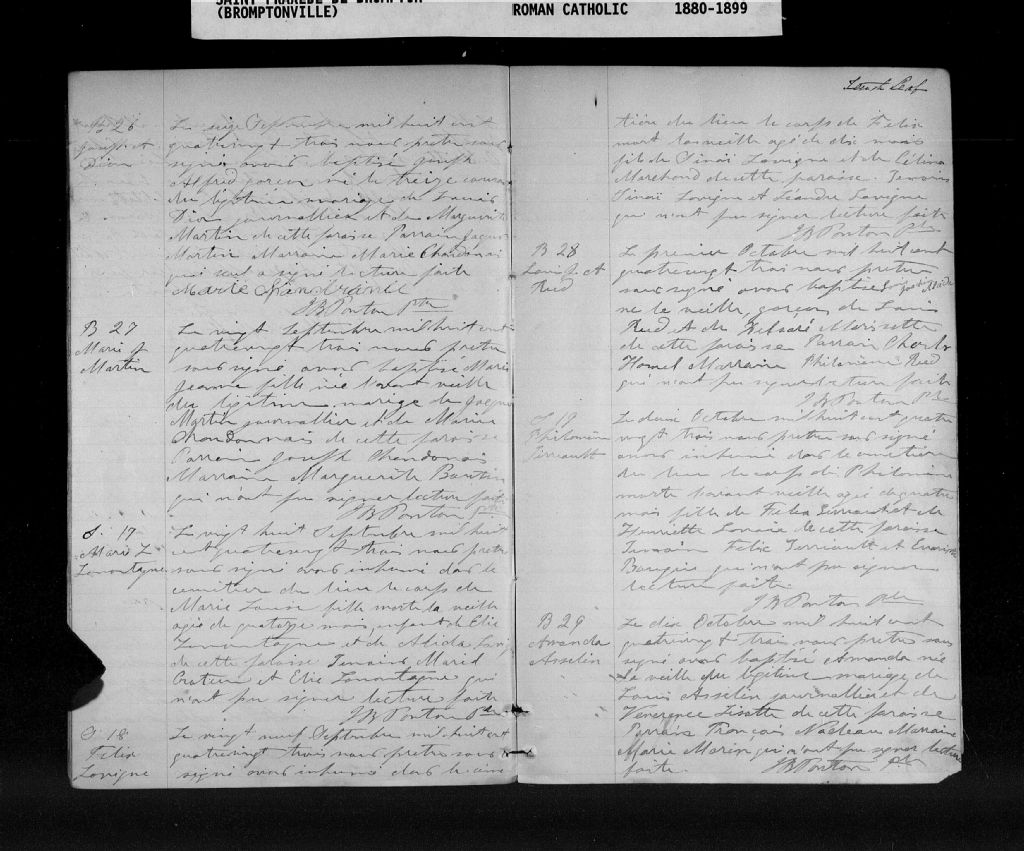 SAINT PRAXEDE DE BROMPTON
(BROMPTONVILLE)
ROMAN CATHOLIC 1880-1899
B 26
Joseph A
Dion
Le seize Septembre mil huit cent
quatrevingt trois nous pretre sous
signé avons baptisé Joseph
Alfred garcon né le treize courant
du légitime mariage de Louis
Dion journallier et de Marguerite
Martin de cette paroisse Parrain Jacques
Martin Marraine Marie Chandonais
qui seul a signé lecture faite
Marie
J B Ponton Ptre
B 27
Marie J
Martin
Le vingt Septembre mil huit cent
quatrevingt trois nous pretre
sous signé avons baptisé Marie
Jeanne fille née l'avant veille
du légitime mariage de Jacques
Martin journallier et de Marie
Chandonnais de cette paroisse
Parrain Joseph Chandonais
Marraine Marguerite
qui n'ont pu signer lecture faite
J B Ponton Ptre
S. 17
Marie L
Lamontagne
Le vingt huit Septembre mil huit
cent quatrevingt trois nous pretre
sous signé avons inhumé dans le
cimetier du lieu le corps de
Marie Louise fille morte la veille
agée de quatorze mois enfant de Elie
Lamontagne et de Alida
de cette paroisse Temoins Marie
et Elie Lamontagne qui
n'ont pu signer lecture faite
J B Ponton Ptre
S 18
Felix
Lavigne
Le vingt neuf Septembre mil huit cent
quatrevingt trois nous pretre sous
signé avons inhumé dans le cime
Tenth Leaf
tière du lieu le corps de Felix
mort la veille agé de dix mois
fils de Sinaï Lavigne et de Célina
Marchand de cette paroisse. Temoins
Sinaï Lavigne et Léandre Lavigne
qui n'ont pu signer lecture faite
J B Ponton Ptre
B 28
Louis J. A
Reed
Le premier Octobre mil huit cent
quatrevingt trois nous pretre
sous signé avons baptisé
né la veille, garçon de Louis
Reed et de Morissette
de cette paroisse Parrain Charles
Hamel Marraine Philomène Reed
qui n'ont pu signer lecture faite
J B Ponton Ptre
S 19
Philomène
Perreault
Le deux Octobre mil huit cent quatre
vingt trois nous pretre sous signé
avons inhumé dans le cimetière
du lieu le corps de Philomène
morte l'avant veille agée de quatre
mois fille de Felix Perreault et de
Henriette de cette paroisse
Temoin Felix Perriault et
qui n'ont pu signer
lecture faite.
J B Ponton Ptre
B 29
Amanda
Asselin
Le dix Octobre mil huit cent
quatrevingt trois nous pretre sous
signé avons baptisé Amanda née
la veille du légitime mariage de
Louis Asselin journallier et de
Lisotte de cette paroisse
Parrain François Nadeau Marraine
Marie Morin qui n'ont pu signer lecture
faite.
J B Ponton Ptre